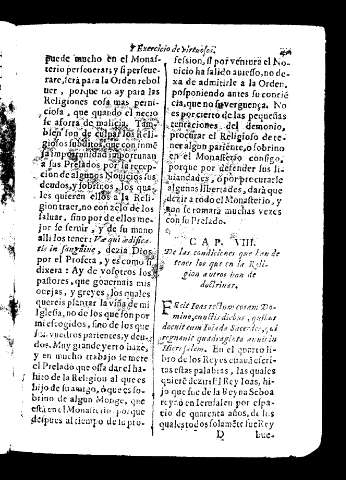 y Exercicio de virtuosos.
puede mucho en el Monas-
terio perseuerar, y si perseue-
rare, será para la Orden rebol
tuer, porque no ay para las
Religiones cosa mas perni-
ciosa, que quando el necio
se aforra de malicia. Tam-
bien son de culpar los Reli-
giosos subditos, que con inmē
sa importunidad importunan
a sus Prelados por la recep-
cion de algunos Nouicios sus
deudos, y sobrinos, los qua-
les quieren ellos a la Reli-
gion traer, no con zelo de los
saluar, sino por de ellos me-
jor se seruir, y de su mano
alli los tener: Væ qui ædifica-
tis in sanguine, dezia Dios
por el Profeta, y es como si
dixera: Ay de vosotros los
pastores, que gouernais mis
ouejas, y greyes, los quales
quereis plantar la viña de mi
Iglesia, no de los que son por
mi escogidos, sino de los que
son vuestros parientes, y deu-
dos. Muy grande yerro haze,
y en mucho trabajo se mete
el Prelado que osa dar el ha-
bito de la Religion al que es
hijo de su amigo, ò que es so-
brino de algun Monge, que
está en el Monasterio porque
despues al tiempo de la pro-
fession, si por ventura el No-
uicio ha salido auiesso, no de-
xa de admitirle a la Orden,
posponiendo antes su concié
cia, que no su verguença. No
es por cierto de las pequeñas
tentaciones del demonio,
procurar el Religioso de te-
ner algun pariente, ò sobrino
en el Monasterio consigo,
porque por defender sus li-
uiandades, ò por procurarle
algunas libertades, dará que
dezir a todo el Monasterio, y
aun se tomará muchas vezes
con su Prelado.
CAP. VIII.
De las condiciones que han de
tener los que en la Reli-
gion a otros han de
doctrinar.
Fecit Ioas rectum coram Do-
mino, cunctis diebus, quibus
docuit eum Ioiada Sacerdos, qui
regnauit quadraginta annis in
Hierusalem. En el quarto li-
bro de los Reyes estan escri-
tas estas palabras, las quales
quieré dezir: El Rey Ioas, hi-
jo que fue de la Reyna Seboa
reynó en Ierusalen por espa-
cio de quarenta años, de los
quales todos solamēte fue Rey
D bue-